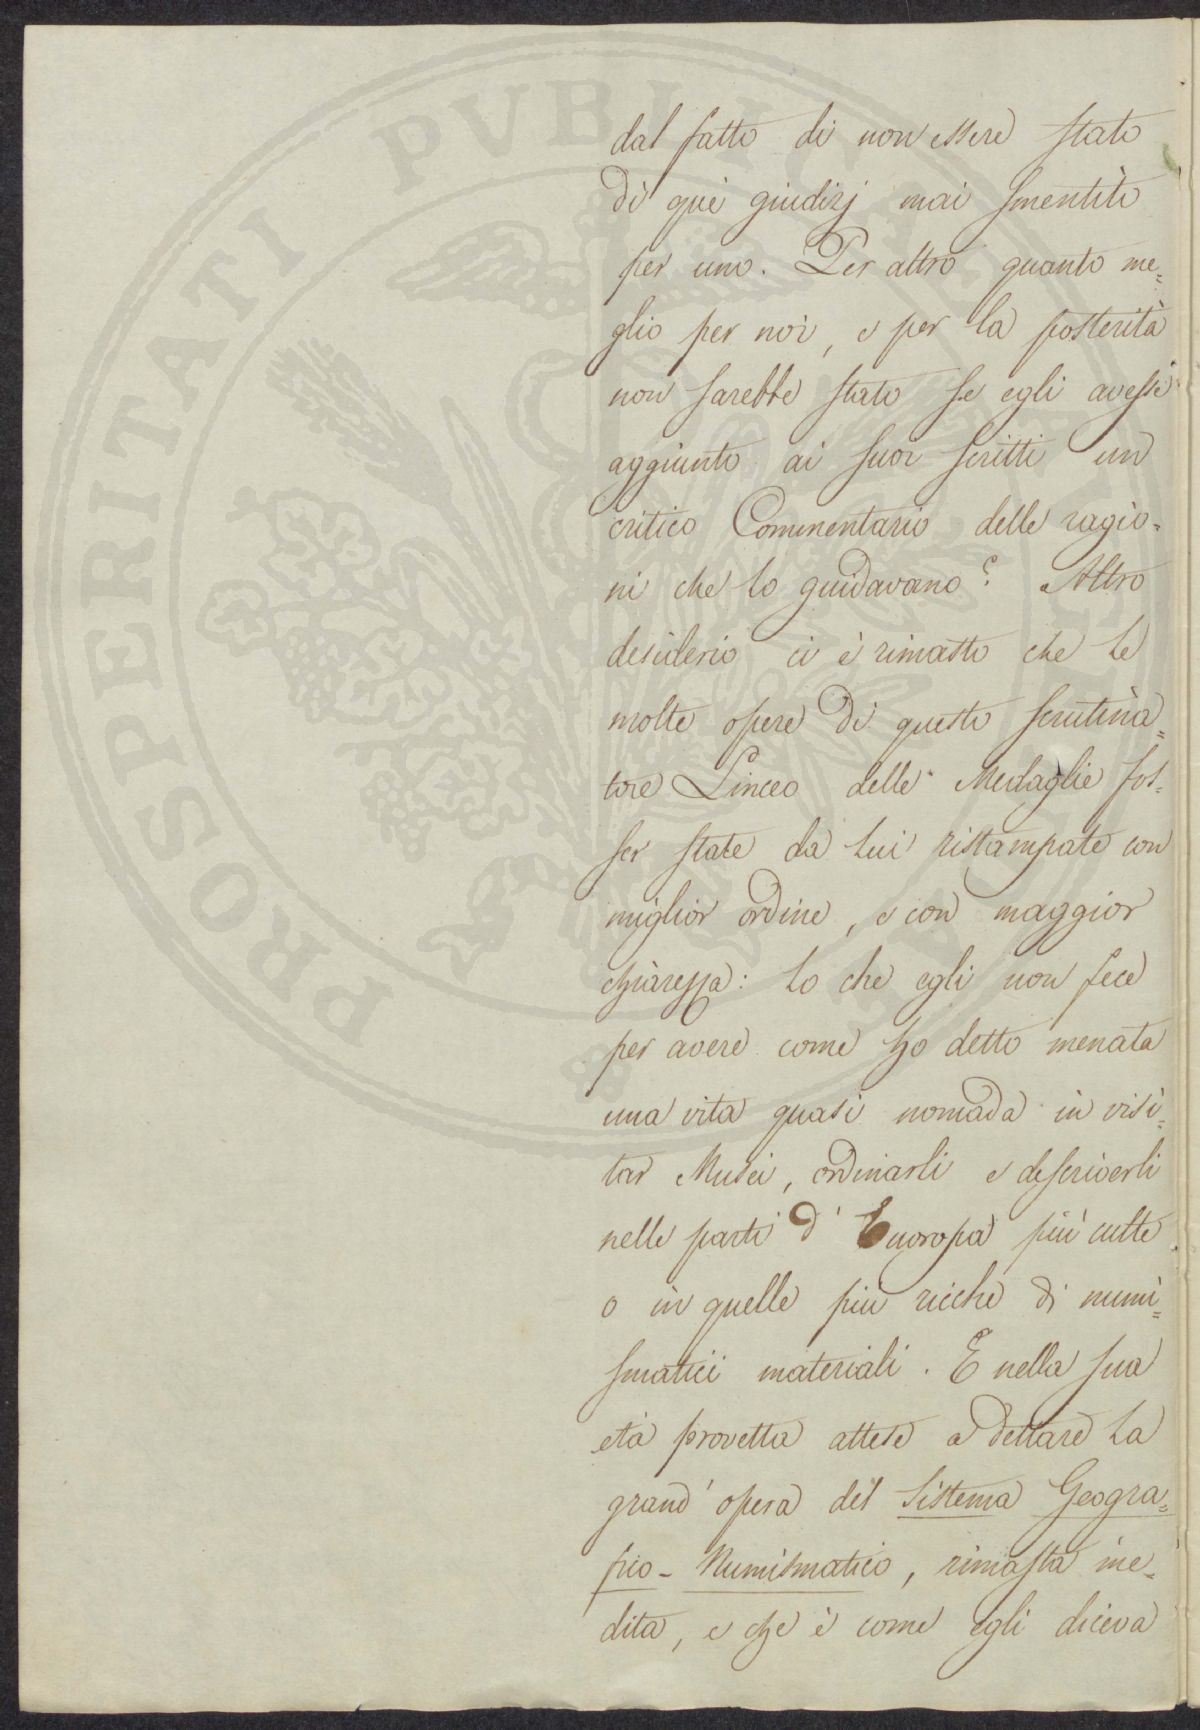 PROSPERITATI PVBLICAE
dal fatto di non essere stato
di què giudizj mai smentito
per uno. Per altro quanto me=
glio per noi, e per la posterità
non sarebbe stato se egli avesse
aggiunto ai suoi scritti un
critico Commentario delle ragio=
ni che lo guidavano? Altro
desiderio ci è rimasto che le
molte opere di questo scrutina=
tore Linceo delle Medaglie fos=
ser state da lui ristampate con
miglior ordine, e con maggior
chiarezza: lo che egli non fece
per avere come ho detto menata
una vita quasi nomada in visi=
tar Musei, ordinarli e descriverli
nelle parti d' Euoropa più culte
o in quelle più ricche di numi=
smatici materiali. E nella sua
età provetta attese a dettare la
grand' opera del Sistema Geogra=
fico-Numismatico, rimasta ine=
dita, e che è come egli diceva